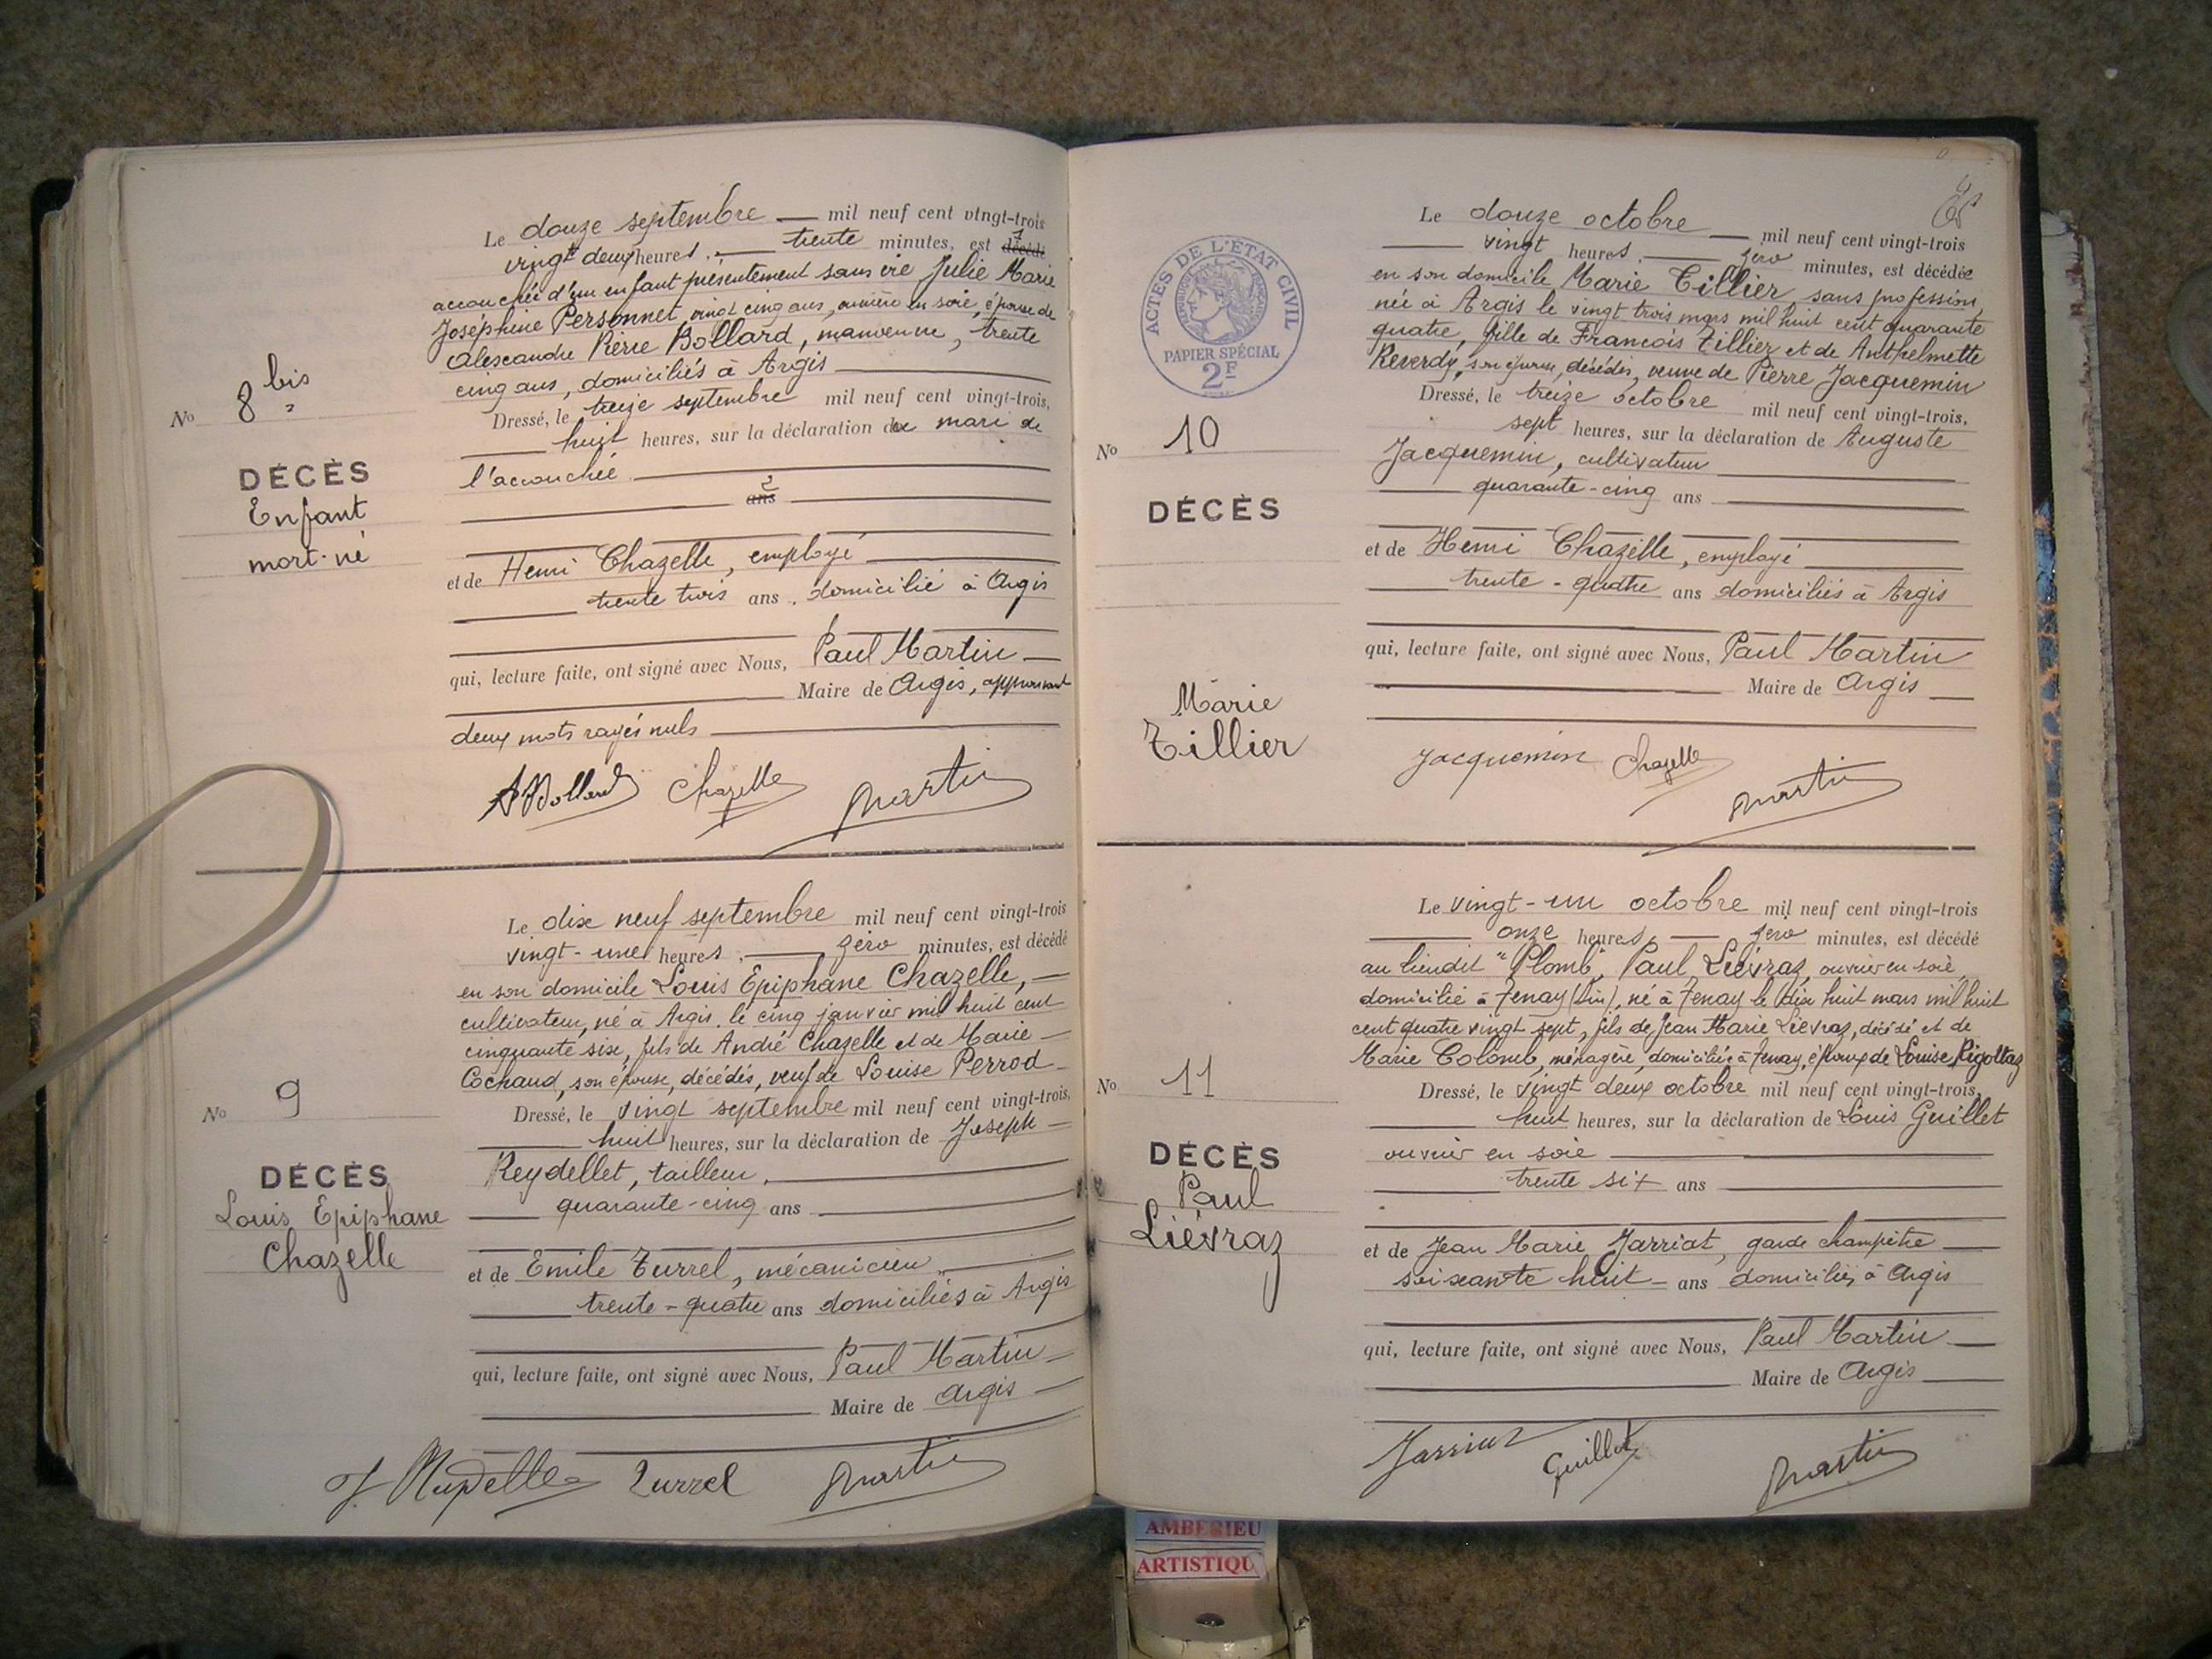 Le douze septembre mil neuf cent vingt-trois
vingt deux heures, trente minutes, est décédé
accouchée d'un enfant présentement sans vie Julie Marie
Joséphine Personnet, vingt cinq ans, ouvrière en soie, épouse de
Alexandre Pierre Bollard, manœuvre, trente
cinq ans, domiciliés à Argis
Dressé, le treize septembre mil neuf cent vingt-trois,
huit heures, sur la déclaration du mari de
l'accouchée
ans
et de Henri Chazelle, employé
trente trois ans, domicilié à Argis
qui, lecture faite, ont signé avec Nous, Paul Martin
Maire de Argis, approuvant
deux mots rayés nuls
No 8 bis
DÉCÈS
Enfant
mort-né
ABollard Chazelle Martin
Le dix neuf septembre mil neuf cent vingt-trois
vingt-une heures, zéro minutes, est décédé
en son domicile Louis Epiphane Chazelle,
cultivateur, né à Argis, le cinq janvier mil huit cent
cinquante six, fils de André Chazelle et de Marie
Cochand, son épouse, décédés, veuf de Louise Perrod
Dressé, le vingt septembre mil neuf cent vingt-trois,
huit heures, sur la déclaration de Joseph
Reydellet, tailleur,
quarante-cinq ans
et de Emile Turrel, mécanicien,
trente-quatre ans domiciliés à Argis
qui, lecture faite, ont signé avec Nous, Paul Martin
Maire de Argis
No 9
DÉCÈS
Louis Epiphane
Chazelle
J. Reydellet Turrel Martin
ACTES DE L'ETAT CIVIL
PAPIER SPÉCIAL
2F
Le douze octobre mil neuf cent vingt-trois
vingt heures, zéro minutes, est décédée
en son domicile Marie Tillier, sans profession,
née à Argis le vingt trois mars mil huit cent quarante
quatre, fille de Francois Tillier et de Anthelmette
Reverdy, son épouse, décédés, veuve de Pierre Jacquemin
Dressé, le treize octobre mil neuf cent vingt-trois,
sept heures, sur la déclaration de Auguste
Jacquemin, cultivateur
quarante-cinq ans
et de Henri Chazelle, employé
trente-quatre ans domiciliés à Argis
qui, lecture faite, ont signé avec Nous, Paul Martin
Maire de Argis
No 10
DÉCÈS
Marie
Tillier
Jacquemin Chazelle Martin
Le vingt-un octobre mil neuf cent vingt-trois
onze heures, zéro minutes, est décédé
au lieudit "Plomb", Paul Liévraz, ouvrier en soie,
domicilié à Tenay (Ain), né à Tenay le dix huit mars mil huit
cent quatre vingt sept, fils de Jean Marie Liévraz, décédé et de
Marie Colomb, ménagère, domiciliée à Tenay, époux de Louise Rigollaz
Dressé, le vingt deux octobre mil neuf cent vingt-trois,
huit heures, sur la déclaration de Louis Guillet
ouvrier en soie
trente six ans
et de Jean Marie Jarriat, garde champêtre
soixante huit ans domiciliés à Argis
qui, lecture faite, ont signé avec Nous, Paul Martin
Maire de Argis
No 11
DÉCÈS
Paul
Liévraz
Jarriat Guillet Martin
AMBERIEU
ARTISTIQU